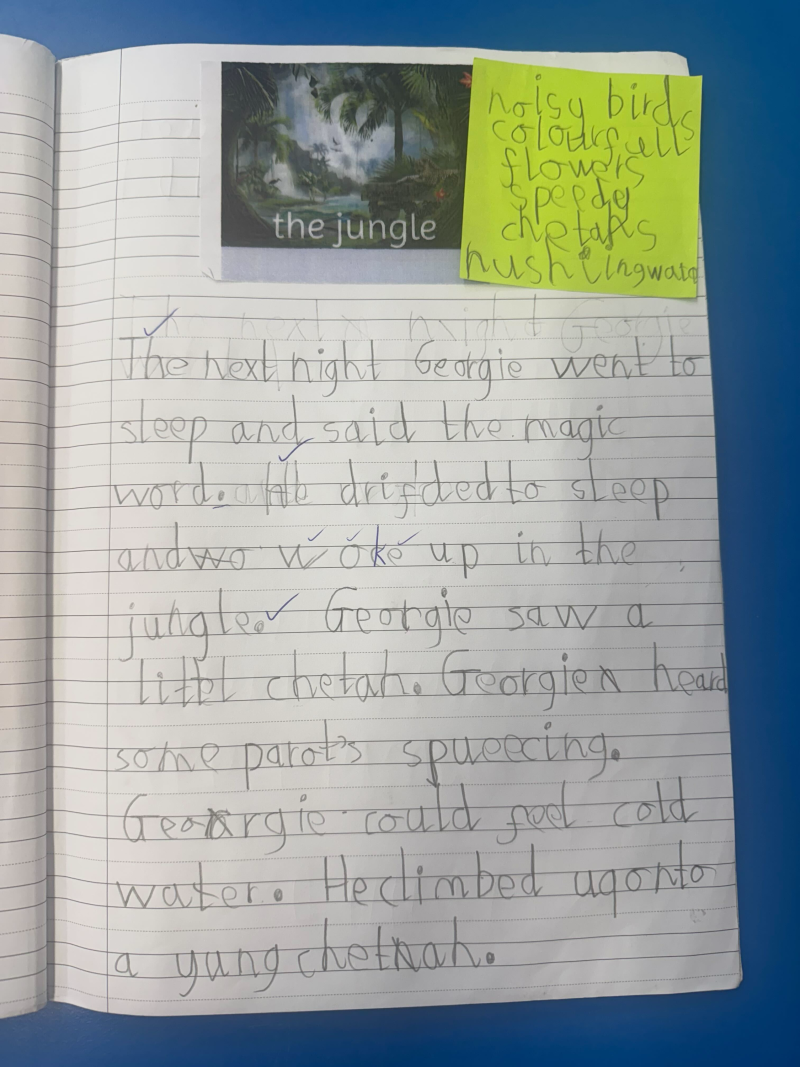 the jungle
noisy birds
colourfulls
flowers
speedy
chetahs
hushiingwata
The next night Georgie went to
sleep and said the magic
word. He drifded to sleep
and wo woke up in the
jungle. Georgie saw a
littel chetah. Georgie heard
some parot's spueecing.
Georgie could feel cold
water. He climbed up onto
a yung chetah.